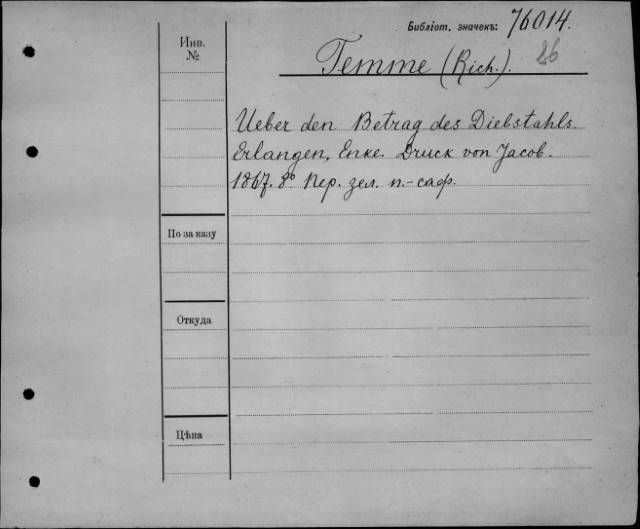 Библіот. значекъ: 76014.
Инв. №
Temme (Rich.). 86
Ueber den Betrag des Diebstahls.
Erlangen, Enke. Druck von Jacob.
1867. 8º Пер. зел. п.-саф.
По заказу
Откуда
Цѣна